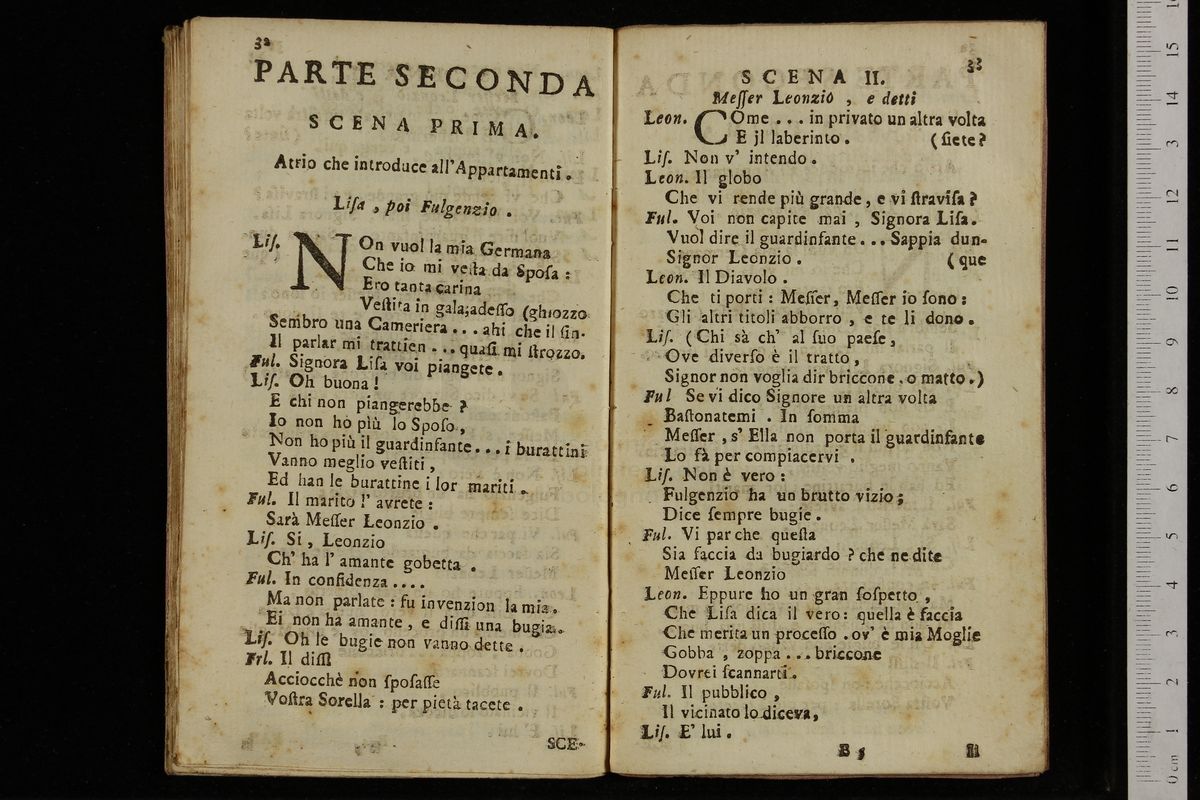 32
PARTE SECONDA
SCENA PRIMA.
Atrio che introduce all'Appartamenti.
Liſa, poi Fulgenzio.
Liſ. NOn vuol la mia Germana
Che io mi veſta da Spoſa:
Ero tanta carina
Veſtita in gala; adeſſo (ghiozzo
Sembro una Cameriera... ahi che il ſin-
Il parlar mi trattien... quaſi mi ſtrozzo.
Ful. Signora Liſa voi piangete.
Liſ. Oh buona!
E chi non piangerebbe?
Io non ho più lo Spoſo,
Non ho più il guardinfante... i burattini
Vanno meglio veſtiti,
Ed han le burattine i lor mariti.
Ful. Il marito l' avrete:
Sarà Meſſer Leonzio.
Liſ. Si, Leonzio
Ch' ha l' amante gobetta.
Ful. In confidenza....
Ma non parlate: fu invenzion la mia.
Ei non ha amante, e diſſi una bugia.
Liſ. Oh le bugie non vanno dette.
Frl. Il diſſi
Acciocchè non ſpoſaſſe
Voſtra Sorella: per pietà tacete.
SCE-
33
SCENA II.
Meſſer Leonzio, e detti
Leon. COme... in privato un altra volta
E jl laberinto. (ſiete?
Liſ. Non v' intendo.
Leon. Il globo
Che vi rende più grande, e vi ſtraviſa?
Ful. Voi non capite mai, Signora Liſa.
Vuol dire il guardinfante... Sappia dun-
Signor Leonzio. (que
Leon. Il Diavolo.
Che ti porti: Meſſer, Meſſer io ſono:
Gli altri titoli abborro, e te li dono.
Liſ. (Chi sà ch' al ſuo paeſe,
Ove diverſo è il tratto,
Signor non voglia dir briccone, o matto.)
Ful Se vi dico Signore un altra volta
Baſtonatemi. In ſomma
Meſſer, s' Ella non porta il guardinfante
Lo fà per compiacervi.
Liſ. Non è vero:
Fulgenzio ha un brutto vizio;
Dice ſempre bugie.
Ful. Vi par che queſta
Sia faccia da bugiardo? che ne dite
Meſſer Leonzio
Leon. Eppure ho un gran ſoſpetto,
Che Liſa dica il vero: quella è faccia
Che merita un proceſſo. ov' è mia Moglie
Gobba, zoppa... briccone
Dovrei ſcannarti.
Ful. Il pubblico,
Il vicinato lo diceva,
Liſ. E' lui.
B 5 Il